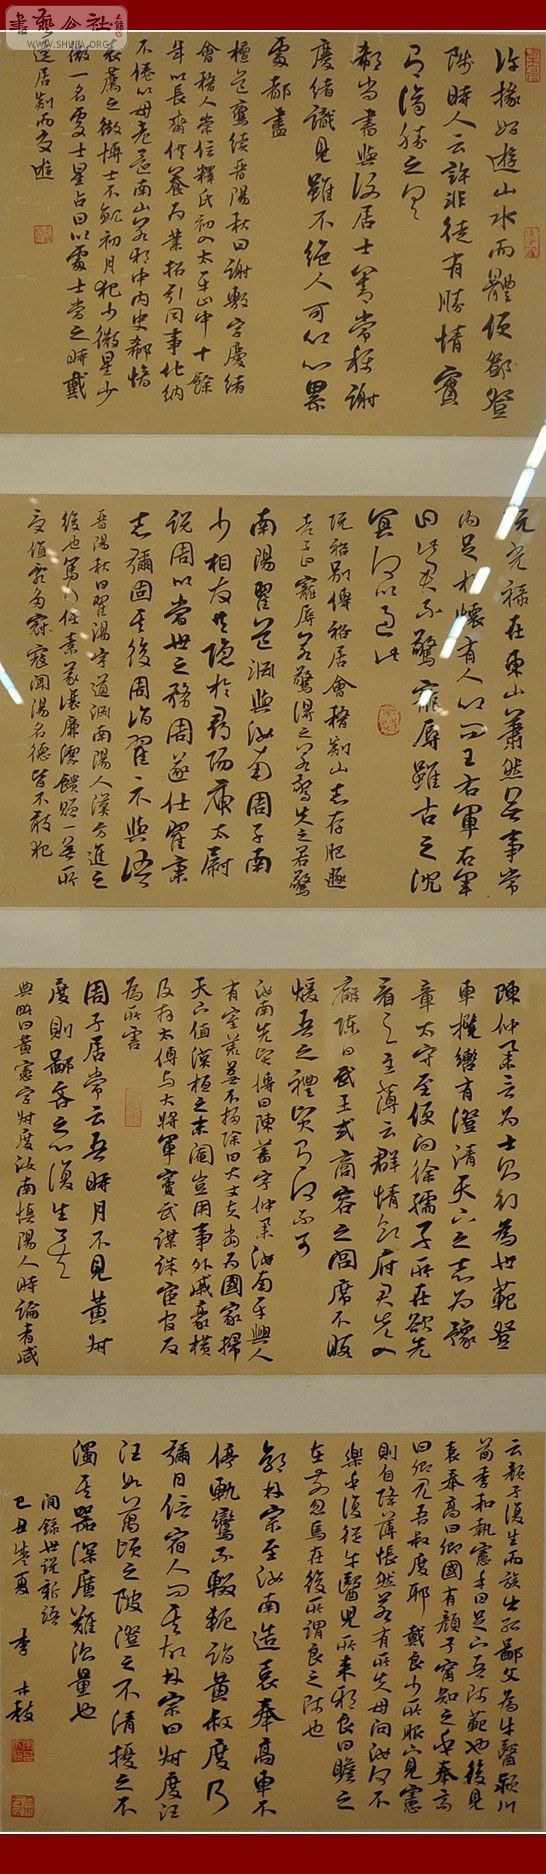 書藝公社
WWW.SHUFA.ORG
許掾好遊山水而體便登
陟時人云許非徒有勝情實
有濟勝之具
郗尚書與謝居士善常稱謝
慶緒識見雖不絕人可以心累
處都盡
檀道鸞續晉陽秋曰謝敷字慶緒
會稽人崇信釋氏初入太平山中十餘
年以長齋供養為業招引同事化納
不倦以母老還南山若邪中內史郗愔
表薦之徵博士不就初月犯少微星少
微一名處士星占曰以處士當之時戴
逵居剡而交遊
阮光祿在東山蕭然無事常
內足於懷有人以問王右軍右軍
曰此君不驚寵辱雖古之沈
冥何以過此
阮裕別傳裕居會稽剡山志存肥遯
老子曰寵辱若驚得之若驚失之若驚
南陽翟道淵與汝南周子南
少相友共隱於尋陽庾太尉
說周以當世之務周遂仕翟秉
志彌固其後周詣翟不與語
晉陽秋曰翟湯字道淵南陽人漢方進之
後也篤行任素義讓廉潔饋贈一無所
受值亂多寇寇聞湯名德皆不敢犯
陳仲舉言為士則行為世範登
車攬轡有澄清天下之志為豫
章太守至便問徐孺子所在欲先
看之主薄云群情欲府君先入
廨陳曰武王式商容之閭席不暇
煖吾之禮賢有何不可
汝南先賢傳曰陳蕃字仲舉汝南平輿人
有室荒蕪不掃除曰大丈夫當為國家掃
天下值漢桓之末閹豎用事外戚豪橫
及拜太傅與大將軍竇武謀誅宦官反
為所害
周子居常云吾時月不見黃叔
度則鄙吝之心復生矣
典略曰黃憲字叔度汝南慎陽人時論者咸
云顏子復生而族出孤鄙父為牛醫潁川
荀季和執憲手曰足下吾師範也後見
袁奉高曰卿國有顏子寧知之乎奉高
曰卿見吾叔度耶戴良少所服下見憲
則自降薄悵然若有所失母問汝何不
樂乎復從牛醫兒所來邪良曰瞻之
在前忽焉在後所謂良之師也
郭林宗至汝南造袁奉高車不
停軌鸞不輟軛詣黃叔度乃
彌日信宿人問其故林宗曰叔度汪
汪如萬頃之陂澄之不清擾之不
濁其器深廣難測量也
間錄世說新語
己丑孟夏 李